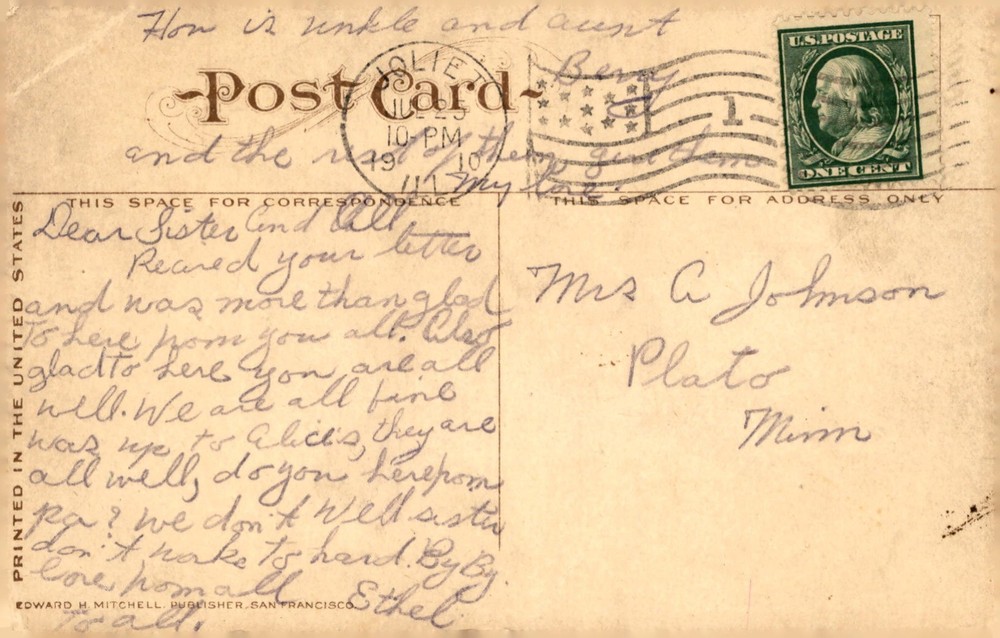 How is unkle and aunt
Berry
and the rest of them give them
my love.
Post Card
JOLIET
10-PM
19 10
ILL
1
U.S. POSTAGE
ONE CENT
THIS SPACE FOR CORRESPONDENCE
THIS SPACE FOR ADDRESS ONLY
PRINTED IN THE UNITED STATES
Dear Sister and All
Reaced your letter
and was more than glad
to here from you all. Also
glad to here you are all
well. We are all fine
was up to Alice's, they are
all well, do you here from
pa? we don't Well sister
don't worke to hard. By By
love from all Ethel
to all.
EDWARD H. MITCHELL. PUBLISHER. SAN FRANCISCO.
Mrs A Johnson
Plato
Minn